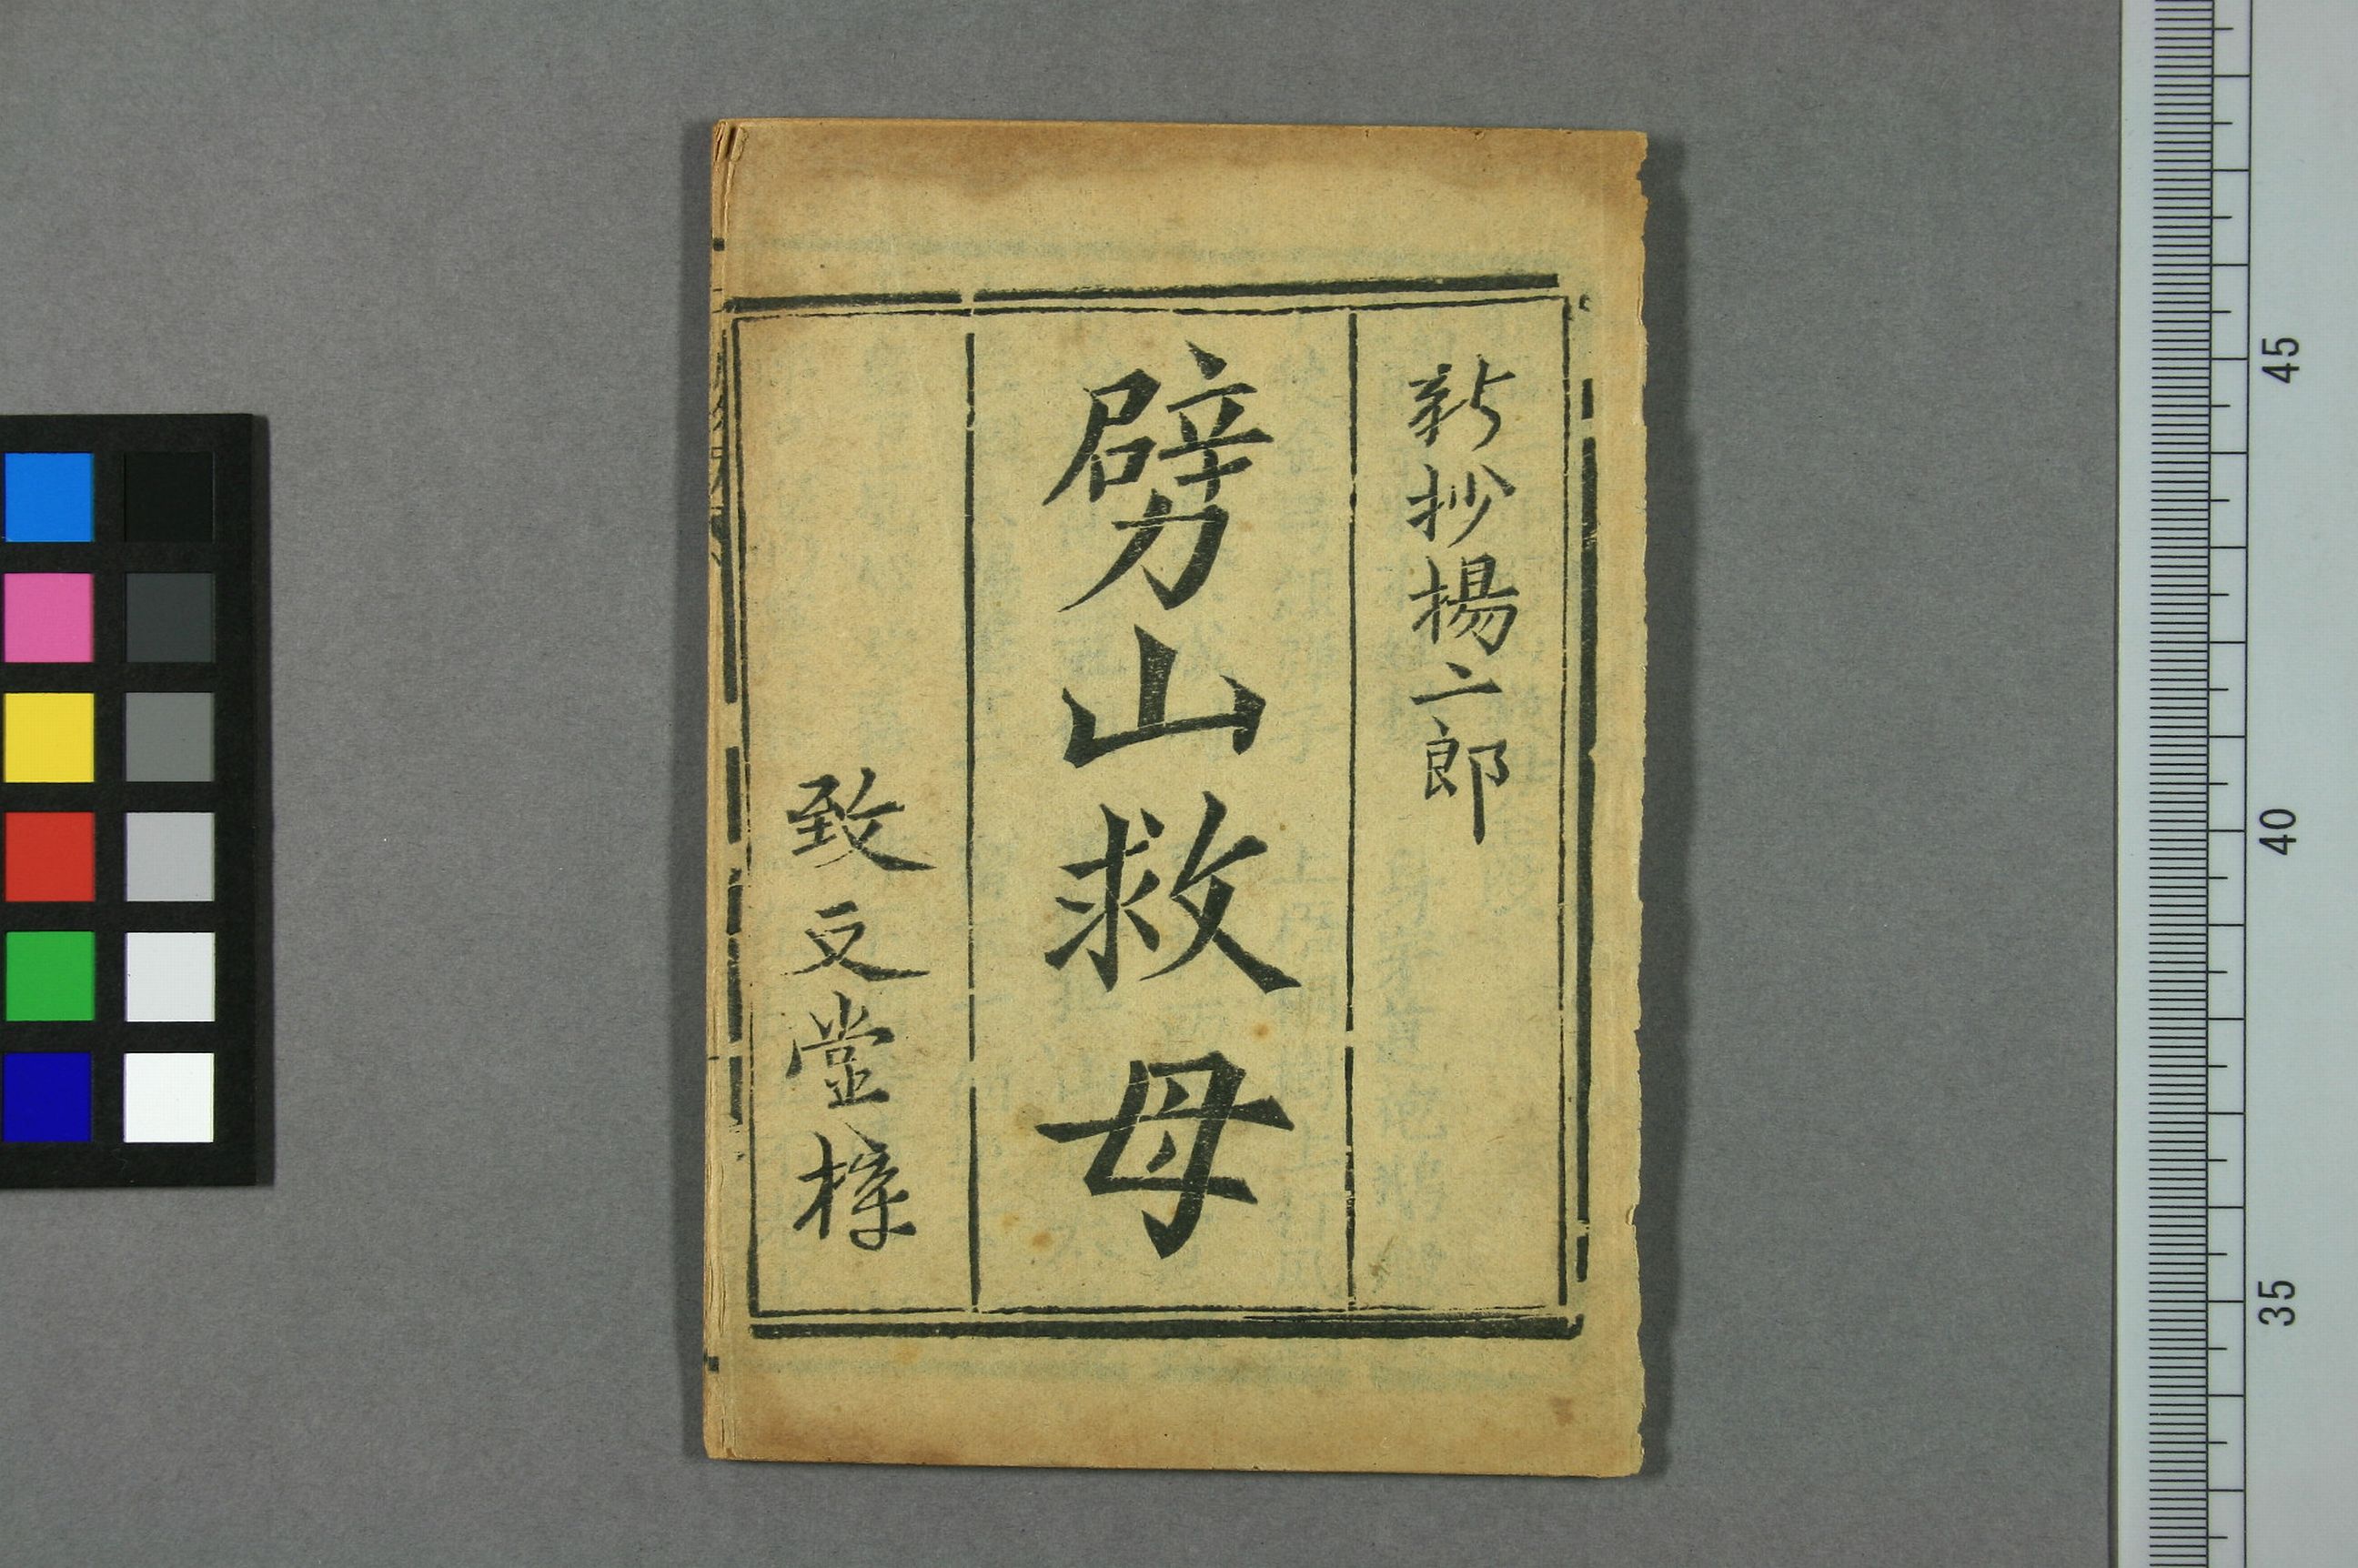 新抄揚二郎
劈山救母
致文堂梓
45
40
35